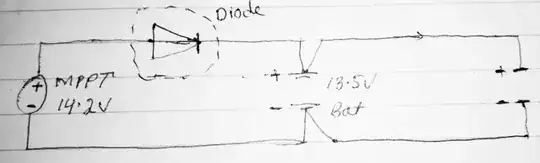 Diode
+ MPPT
- 14.2V
+ 13.5V
- Bat
+
-